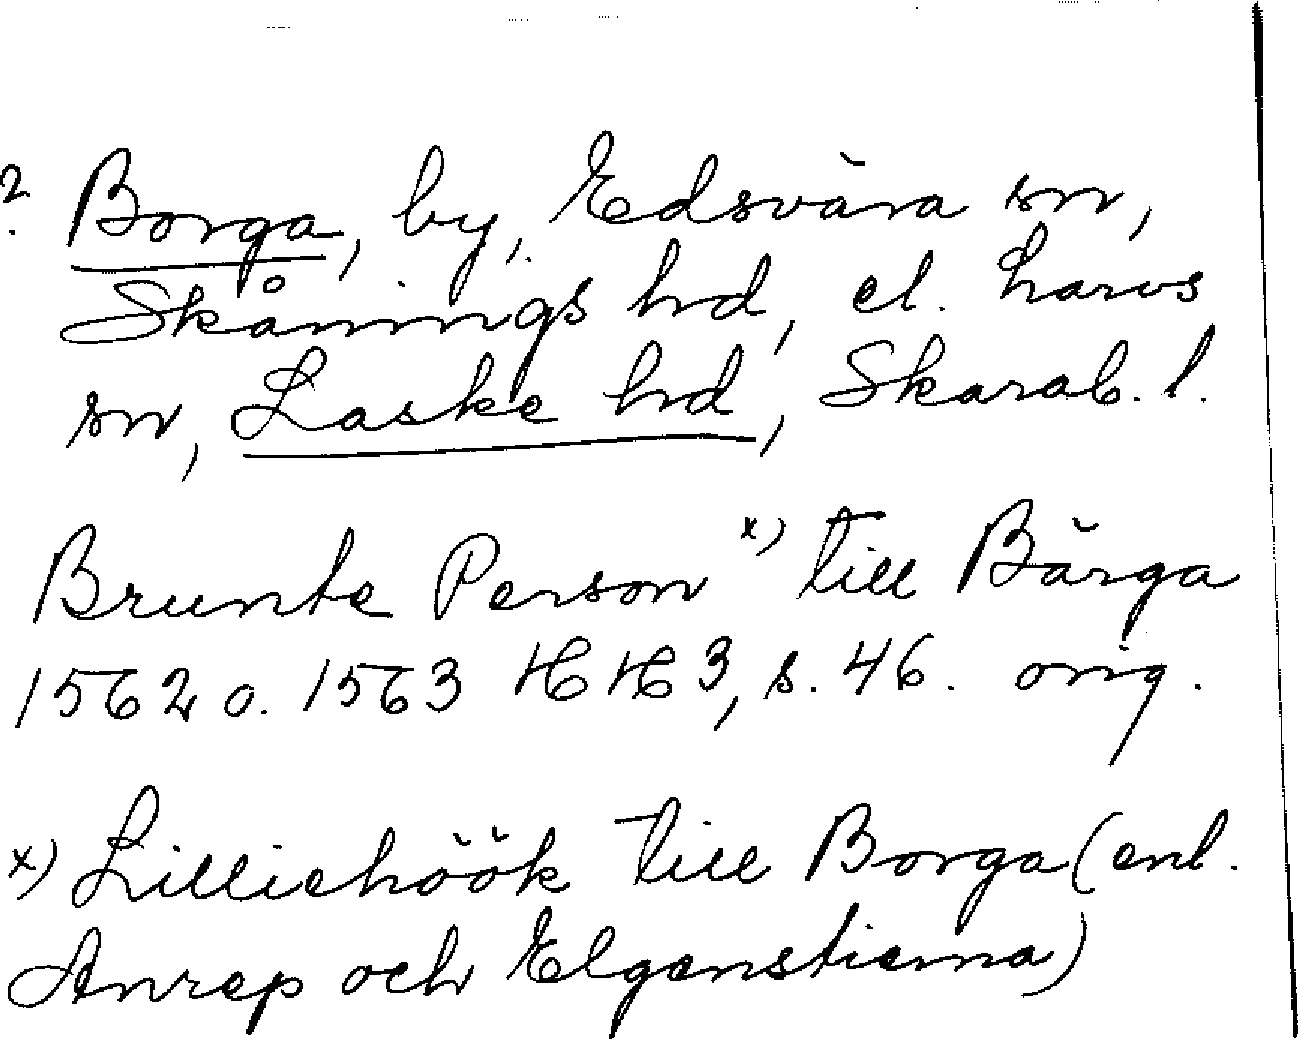 ? Borga, by, Edsvära sn,
Skånings hd, el. Larvs
sn, Laske hd, Skarab. l.
Brunte Person x) till Bärga
1562 o. 1563 HH 3, s. 46. orig.
x) Lilliehöök till Borga (enl.
Anrep och Elgenstierna)